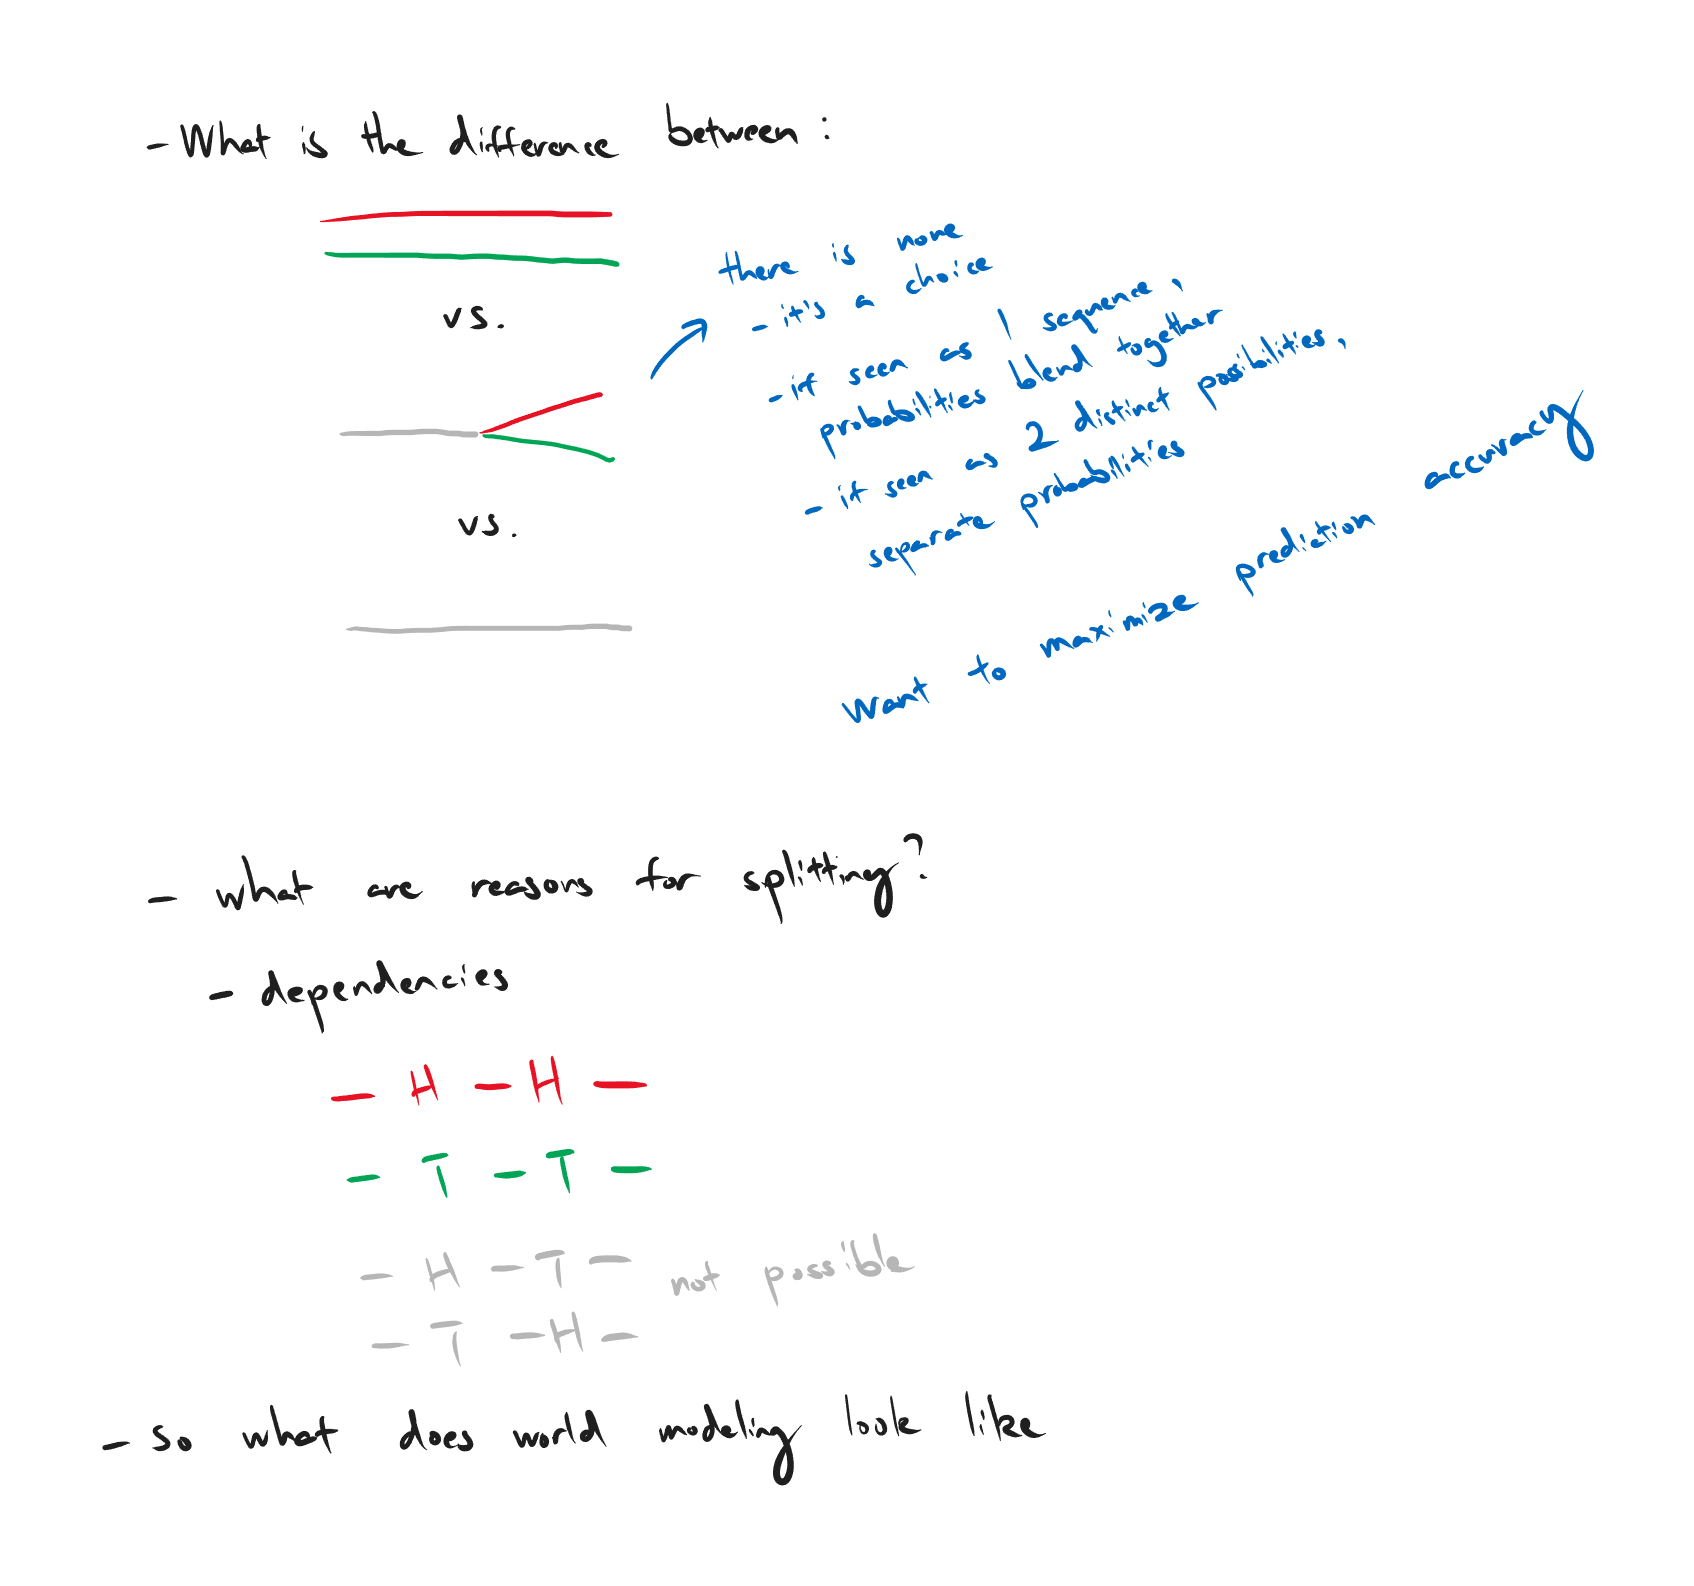 - What is the difference between :
vs.
there is none
- it's a choice
- if seen as 1 sequence,
probabilities blend together
- if seen as 2 distinct possibilities,
separate probabilities
vs.
Want to maximize prediction accuracy
- what are reasons for splitting?
- dependencies
- H - H -
- T - T -
- H - T - not possible
- T - H -
- so what does world modeling look like